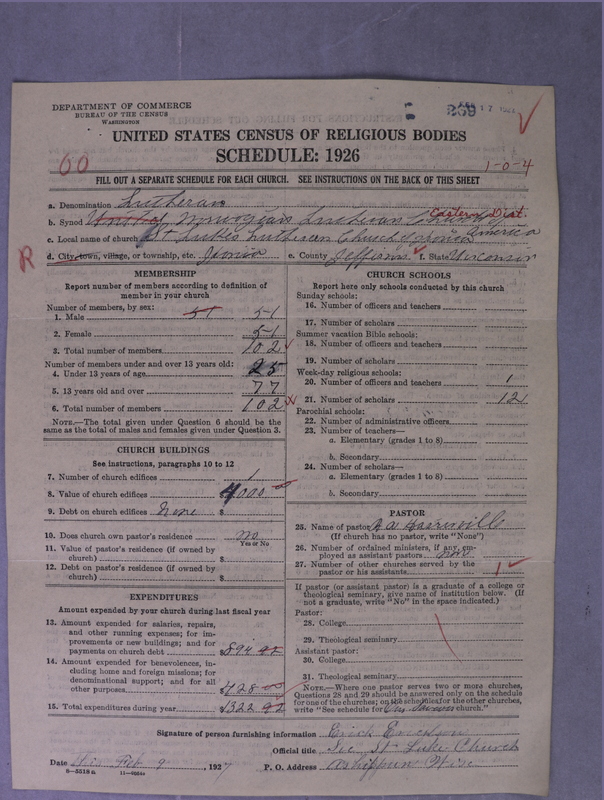 DEPARTMENT OF COMMERCE
BUREAU OF THE CENSUS
WASHINGTON
269
UNITED STATES CENSUS OF RELIGIOUS BODIES
SCHEDULE: 1926
60
1-0-4
FILL OUT A SEPARATE SCHEDULE FOR EACH CHURCH. SEE INSTRUCTIONS ON THE BACK OF THIS SHEET
a. Denomination Lutheran
b. Synod Norwegian Lutheran Church Eastern Dist.
America
c. Local name of church St Lukes Lutheran Church
R
d. City, town, village, or township, etc. Ixonia e. County Jefferson f. State Wisconsin
MEMBERSHIP
Report number of members according to definition of
member in your church
Number of members, by sex:
1. Male 51 51
2. Female 51
3. Total number of members 102
Number of members under and over 13 years old:
4. Under 13 years of age 25
5. 13 years old and over 77
6. Total number of members 102
NOTE.—The total given under Question 6 should be the
same as the total of males and females given under Question 3.
CHURCH BUILDINGS
See instructions, paragraphs 10 to 12
7. Number of church edifices 1
8. Value of church edifices $4000
9. Debt on church edifices none $
10. Does church own pastor's residence? no
Yes or No
11. Value of pastor's residence (if owned by
church) $
12. Debt on pastor's residence (if owned by
church) $
EXPENDITURES
Amount expended by your church during last fiscal year
13. Amount expended for salaries, repairs,
and other running expenses; for im-
provements or new buildings; and for
payments on church debt $894
14. Amount expended for benevolences, in-
cluding home and foreign missions; for
denominational support; and for all
other purposes $428
15. Total expenditures during year $1322
CHURCH SCHOOLS
Report here only schools conducted by this church
Sunday schools:
16. Number of officers and teachers
17. Number of scholars
Summer vacation Bible schools:
18. Number of officers and teachers
19. Number of scholars
Week-day religious schools:
20. Number of officers and teachers 1
21. Number of scholars 12
Parochial schools:
22. Number of administrative officers
23. Number of teachers—
a. Elementary (grades 1 to 8)
b. Secondary
24. Number of scholars—
a. Elementary (grades 1 to 8)
b. Secondary
PASTOR
25. Name of pastor
(If church has no pastor, write "None")
26. Number of ordained ministers, if any, em-
ployed as assistant pastors none
27. Number of other churches served by the
pastor or his assistants 1
If pastor (or assistant pastor) is a graduate of a college or
theological seminary, give name of institution below. (If
not a graduate, write "No" in the space indicated.)
Pastor:
28. College
29. Theological seminary
Assistant pastor:
30. College
31. Theological seminary
NOTE.—Where one pastor serves two or more churches,
Questions 28 and 29 should be answered only on the schedule
for one of the churches; on the schedules for the other churches,
write "See schedule for Our Saviors church."
Signature of person furnishing information Erick Erickson
Official title Sec. St Luke Church
Date This Feb 9, 1927 P. O. Address Ashippun Wisc
8—5518a 11—9264